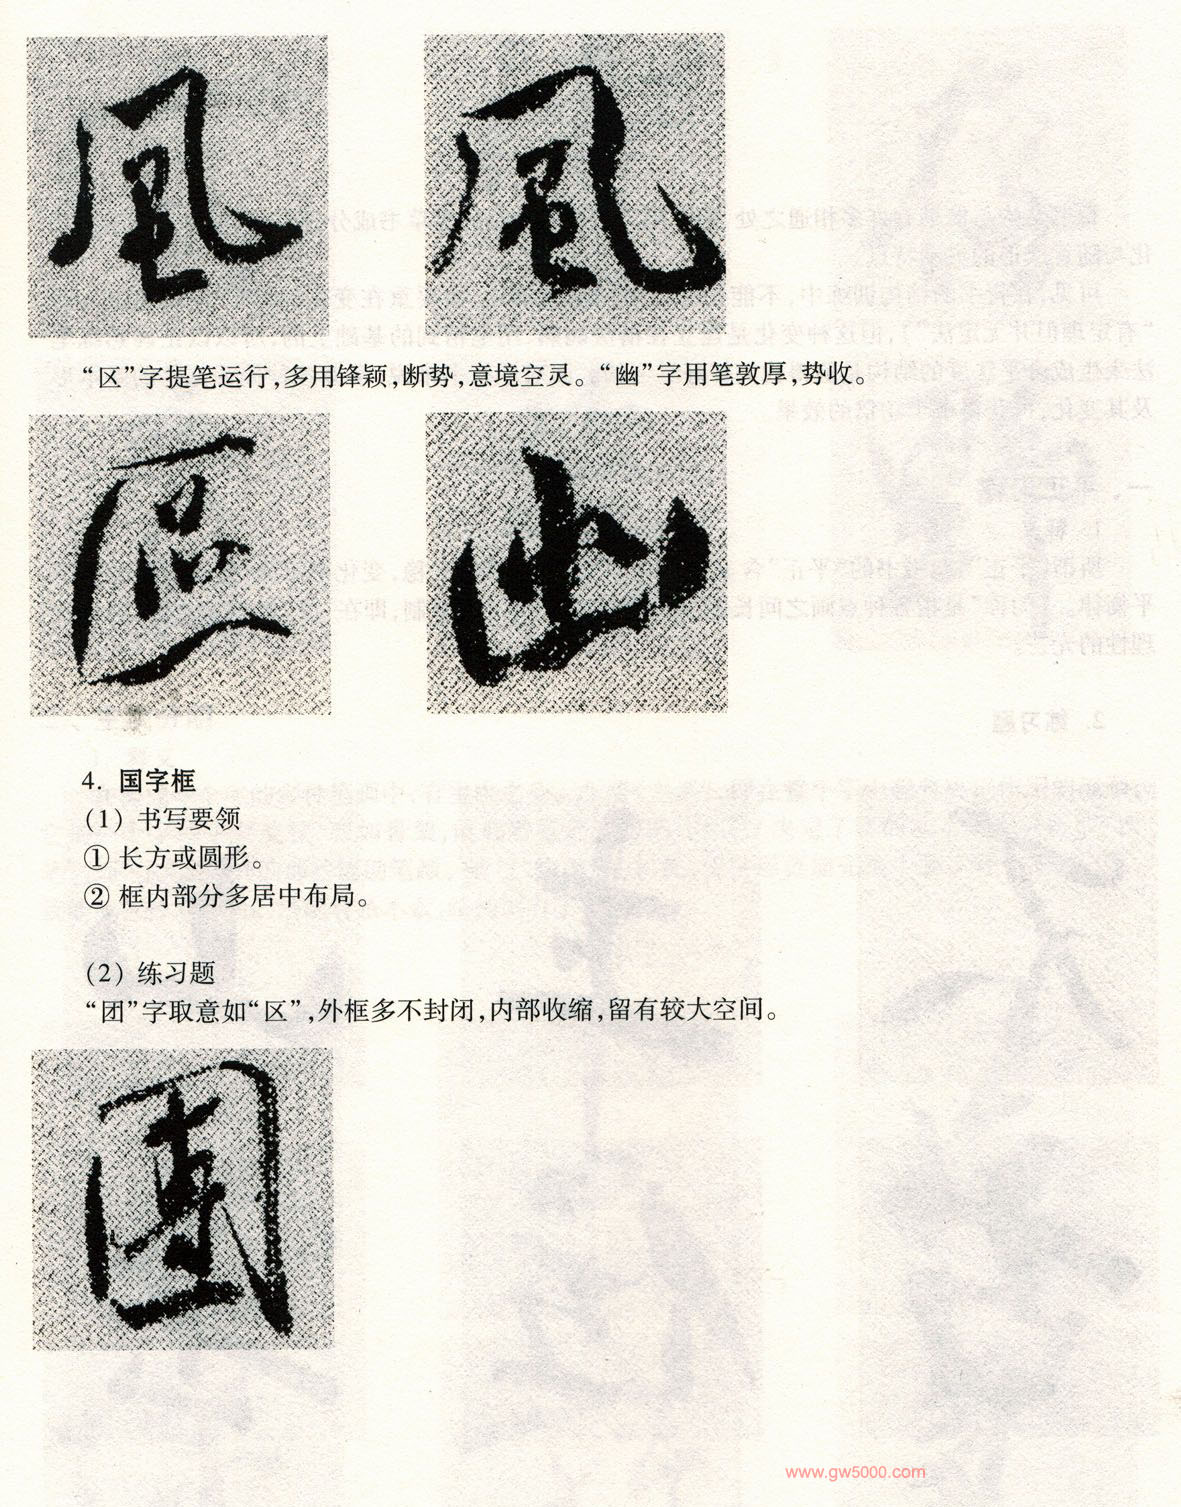 風 風
“区”字提笔运行,多用锋颖,断势,意境空灵。“幽”字用笔敦厚,势收。
區 幽
4. 国字框
(1) 书写要领
① 长方或圆形。
② 框内部分多居中布局。
(2) 练习题
“团”字取意如“区”,外框多不封闭,内部收缩,留有较大空间。
團
www.gw5000.com